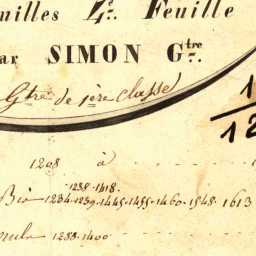 uilles 4e. Feuille
par SIMON Gtre.
Gtre de 1ère classe
1
12
1208 à
1238-1418
Bio 1234-1239-1445-1455-1460-1548-1613
1288-1400